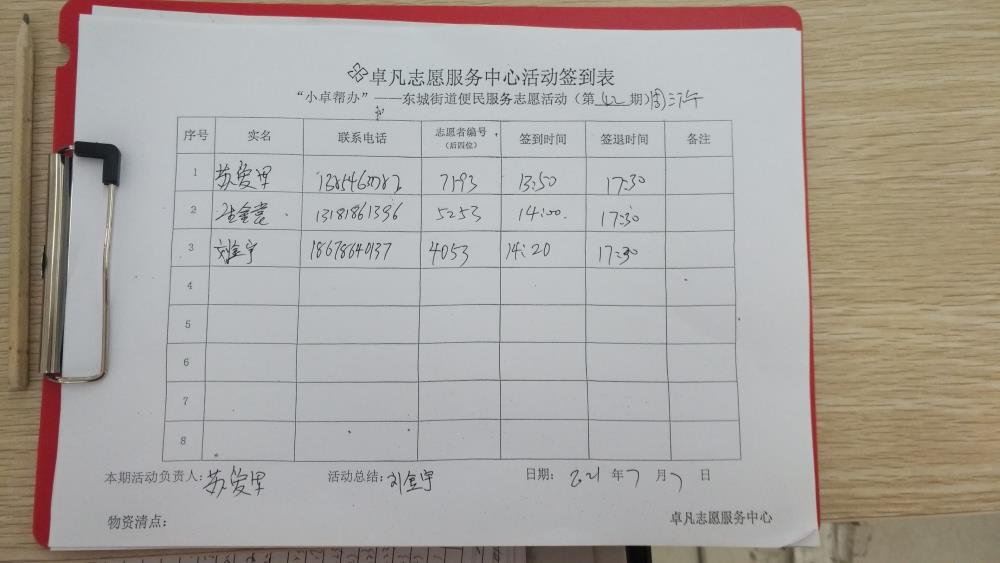 卓凡志愿服务中心活动签到表
“小卓帮办”——东城街道便民服务志愿活动（第42期）周三下午
序号 实名 联系电话 志愿者编号（后四位） 签到时间 签退时间 备注
1 苏爱军 7193 13:50 17:30
2 13181861396 5253 14:00 17:30
3 刘金宇 18678640137 4053 14:20 17:30
4
5
6
7
8
本期活动负责人：苏爱军 活动总结：刘金宇 日期：2021年7月7日
物资清点： 卓凡志愿服务中心